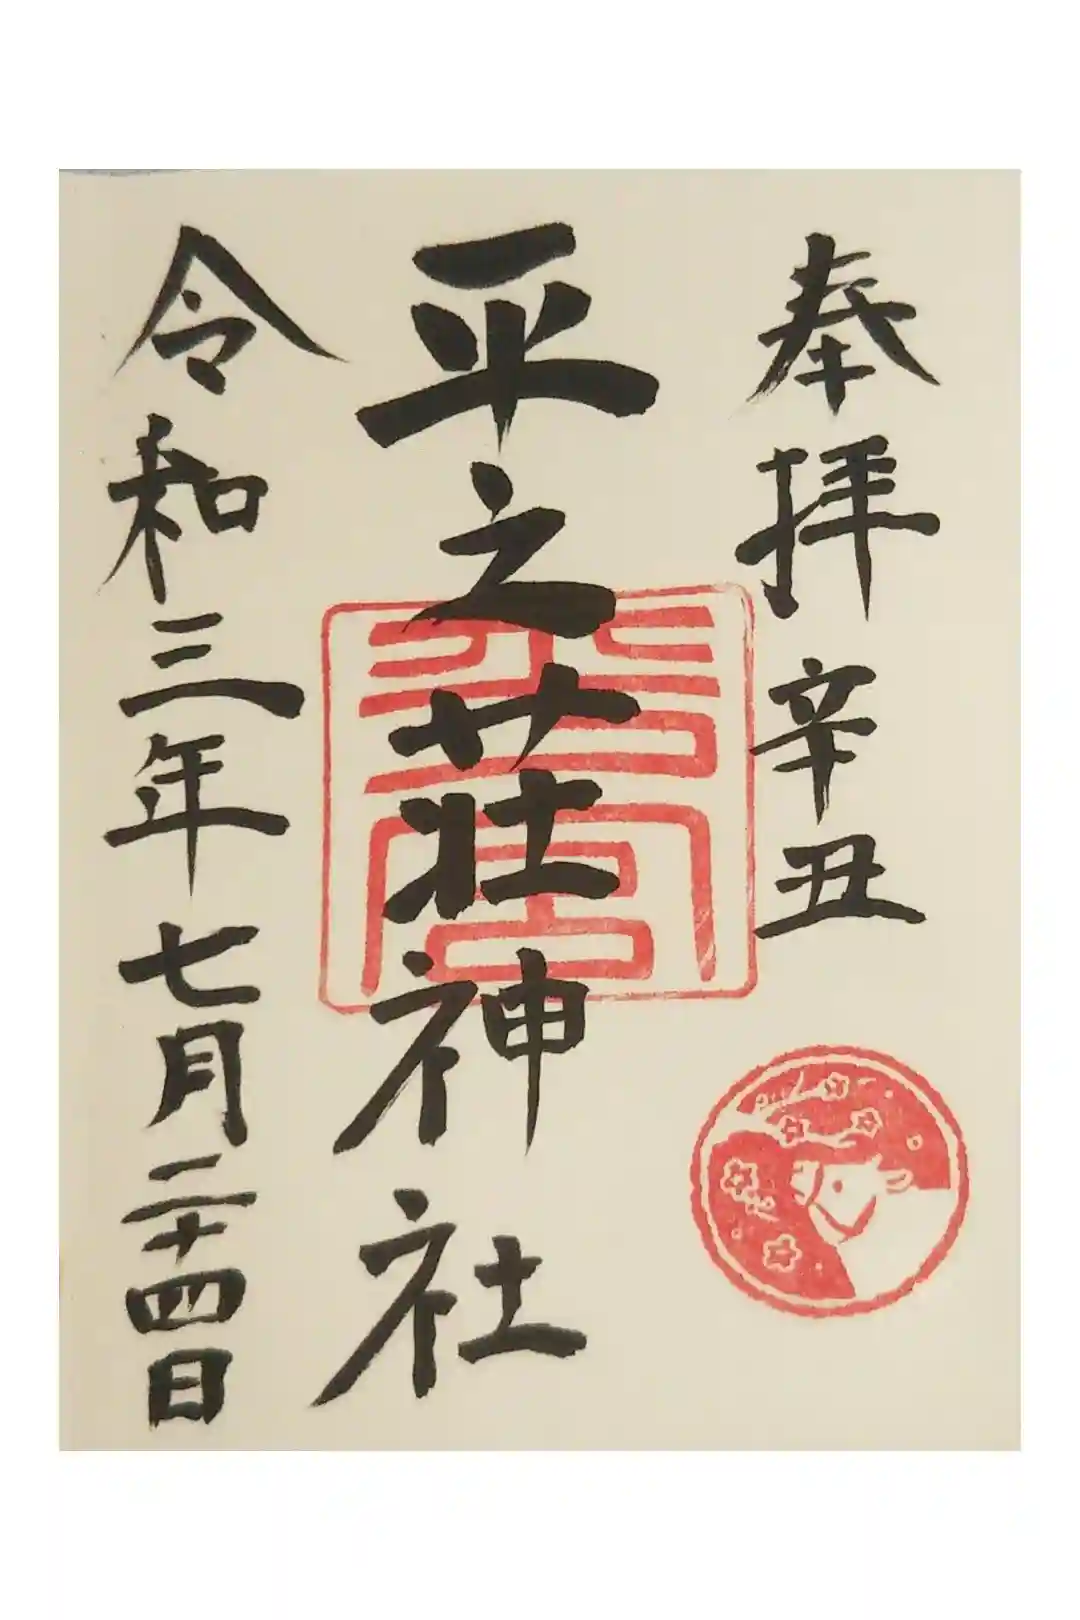 奉拝 辛丑
平之荘神社
令和三年七月二十四日